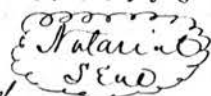 Notarial
Seal